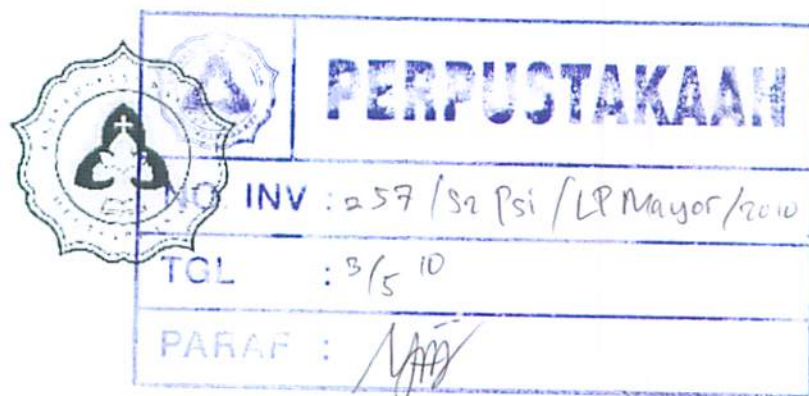 PERPUSTAKAAN
NO. INV : 257/S2 Psi/LP Mayor/2010
TGL : 3/5 10
PARAF :